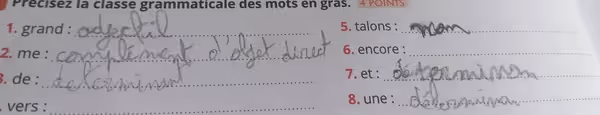 Précisez la classe grammaticale des mots en gras. 4 POINTS
1. grand : adjectif
2. me : complément d'objet direct
3. de : determinant
vers :
5. talons : nom
6. encore :
7. et : déterminan
8. une : déterminan